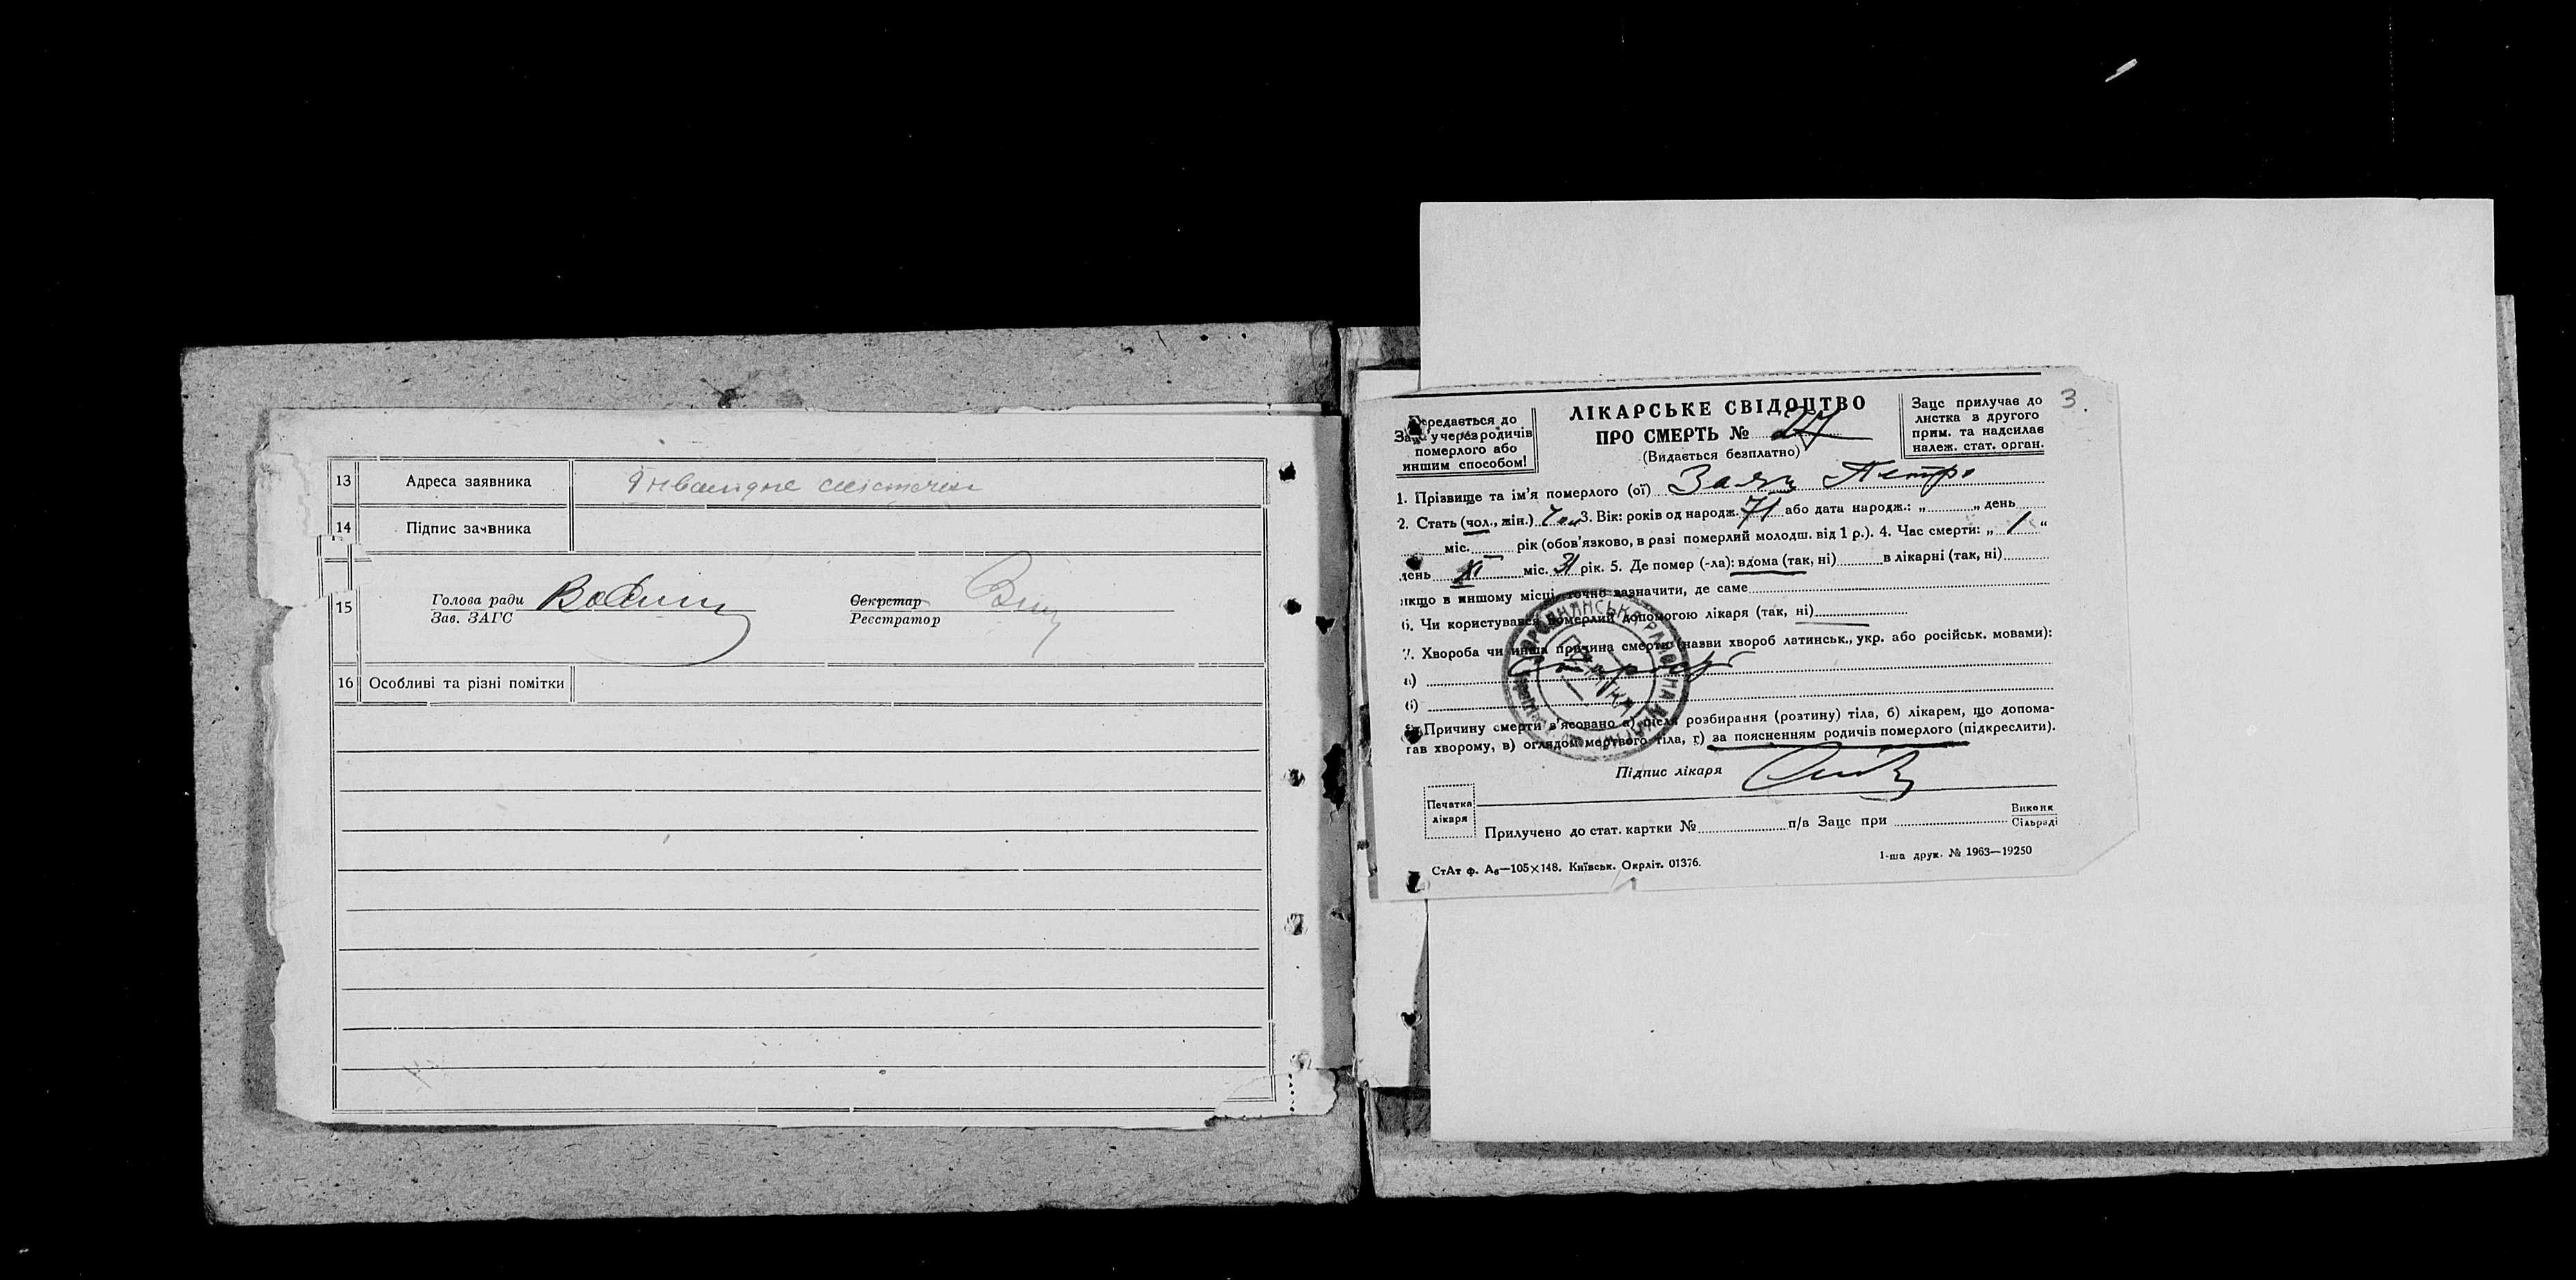 13 Адреса заявника
14 Підпис заявника
15 Голова ради
Зав. ЗАГС
Секретар
Реєстратор
16 Особливі та різні помітки
3.
Передається до
Загсу через родичів
померлого або
иншим способом!
ЛІКАРСЬКЕ СВІДОЦТВО
ПРО СМЕРТЬ № 27
(Видається безплатно)
Загс прилучає до
листка в другого
прим. та надсилає
належ. стат. орган.
1. Прізвище та ім'я померлого (ої) Заяц Петро
2. Стать (чол., жін.) Чол 3. Вік: років од народж. 71 або дата народж.: „ „ день
міс. рік (обов'язково, в разі померлий молодш. від 1 р.). 4. Час смерти: „ 1 “
день XI міс. 31 рік. 5. Де помер (-ла): вдома (так, ні) в лікарні (так, ні)
якщо в иншому місці, точно зазначити, де саме
6. Чи користувався померлий допомогою лікаря (так, ні)
7. Хвороба чи инша причина смерти (назви хвороб латинськ., укр. або російськ. мовами):
а) Старість
б)
8. Причину смерти з'ясовано а) після розбирання (розтину) тіла, б) лікарем, що допома-
гав хворому, в) оглядом мертвого тіла, г) за поясненням родичів померлого (підкреслити).
Підпис лікаря
Печатка
лікаря
Прилучено до стат. картки № п/в Загс при
Виконк
Сільраді
СтАт ф. А₆—105×148. Київськ. Окрліт. 01376.
1-ша друк. № 1963—19250